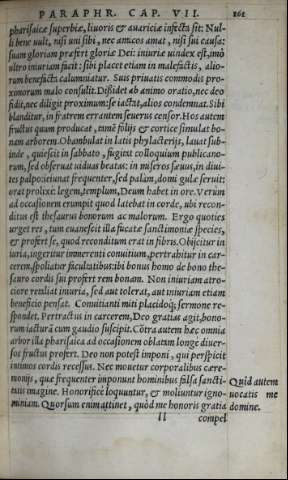 PARAPHR. CAP. VII. 161
pharisaicæ superbiæ, liuoris & auariciæ infecta sit: Nul-
li bene uult, nisi uni sibi, nec amicos amat, nisi sui causa:
suam gloriam præfert gloriæ Dei: iniuriæ uindex est, imò
ultro iniuriam facit: sibi placet etiam in malefactis, alio-
rum benefacta calumniatur. Suis priuatis commodis pro-
ximorum malo consulit. Dissidet ab animo oratio, nec deo
fidit, nec diligit proximum: se iactat, alios condemnat. Sibi
blanditur, in fratrem errantem seuerus censor. Hos autem
fructus quum producat, tamē folijs & cortice simulat bo-
nam arborem. Obambulat in latis phylacterijs, lauat sub-
inde, quiescit in sabbato, fugiens colloquium publicano-
rum, sed obseruat uiduas beatas: in miseros sæuus, in diui-
tes palpo: ieiunat frequenter, sed palam, domi gulæ seruit:
orat prolixè: legem, templum, Deum habet in ore. Verum
ad occasionem erumpit quod latebat in corde, ubi recon-
ditus est thesaurus bonorum ac malorum. Ergo quoties
urget res, tum euanescit illa fucatæ sanctimoniæ species,
& profert se, quod reconditum erat in fibris. Obijcitur in
iuria, ingeritur immerenti conuitium, pertrahitur in car-
cerem, spoliatur facultatibus: ibi bonus homo de bono the-
sauro cordis sui profert rem bonam. Non iniuriam atro-
ciore retaliat iniuria, sed aut tolerat, aut iniuriam etiam
beneficio pensat. Conuitianti miti placidoq; sermone re-
spondet. Pertractus in carcerem, Deo gratias agit, bono-
rum iacturā cum gaudio suscipit. Cōtra autem hæc omnia
arbor illa pharisaica ad occasionem oblatam longe diuer-
sos fructus profert. Deo non potest imponi, qui perspicit
intimos cordis recessus. Nec mouetur corporalibus cære-
monijs, quæ frequenter imponunt hominibus falsa sancti-
tatis imagine. Honorificè loquuntur, & moliuntur igno-
miniam. Quorsum enim attinet, quòd me honoris gratia
Quid autem
uocatis me
domine.
ll compel